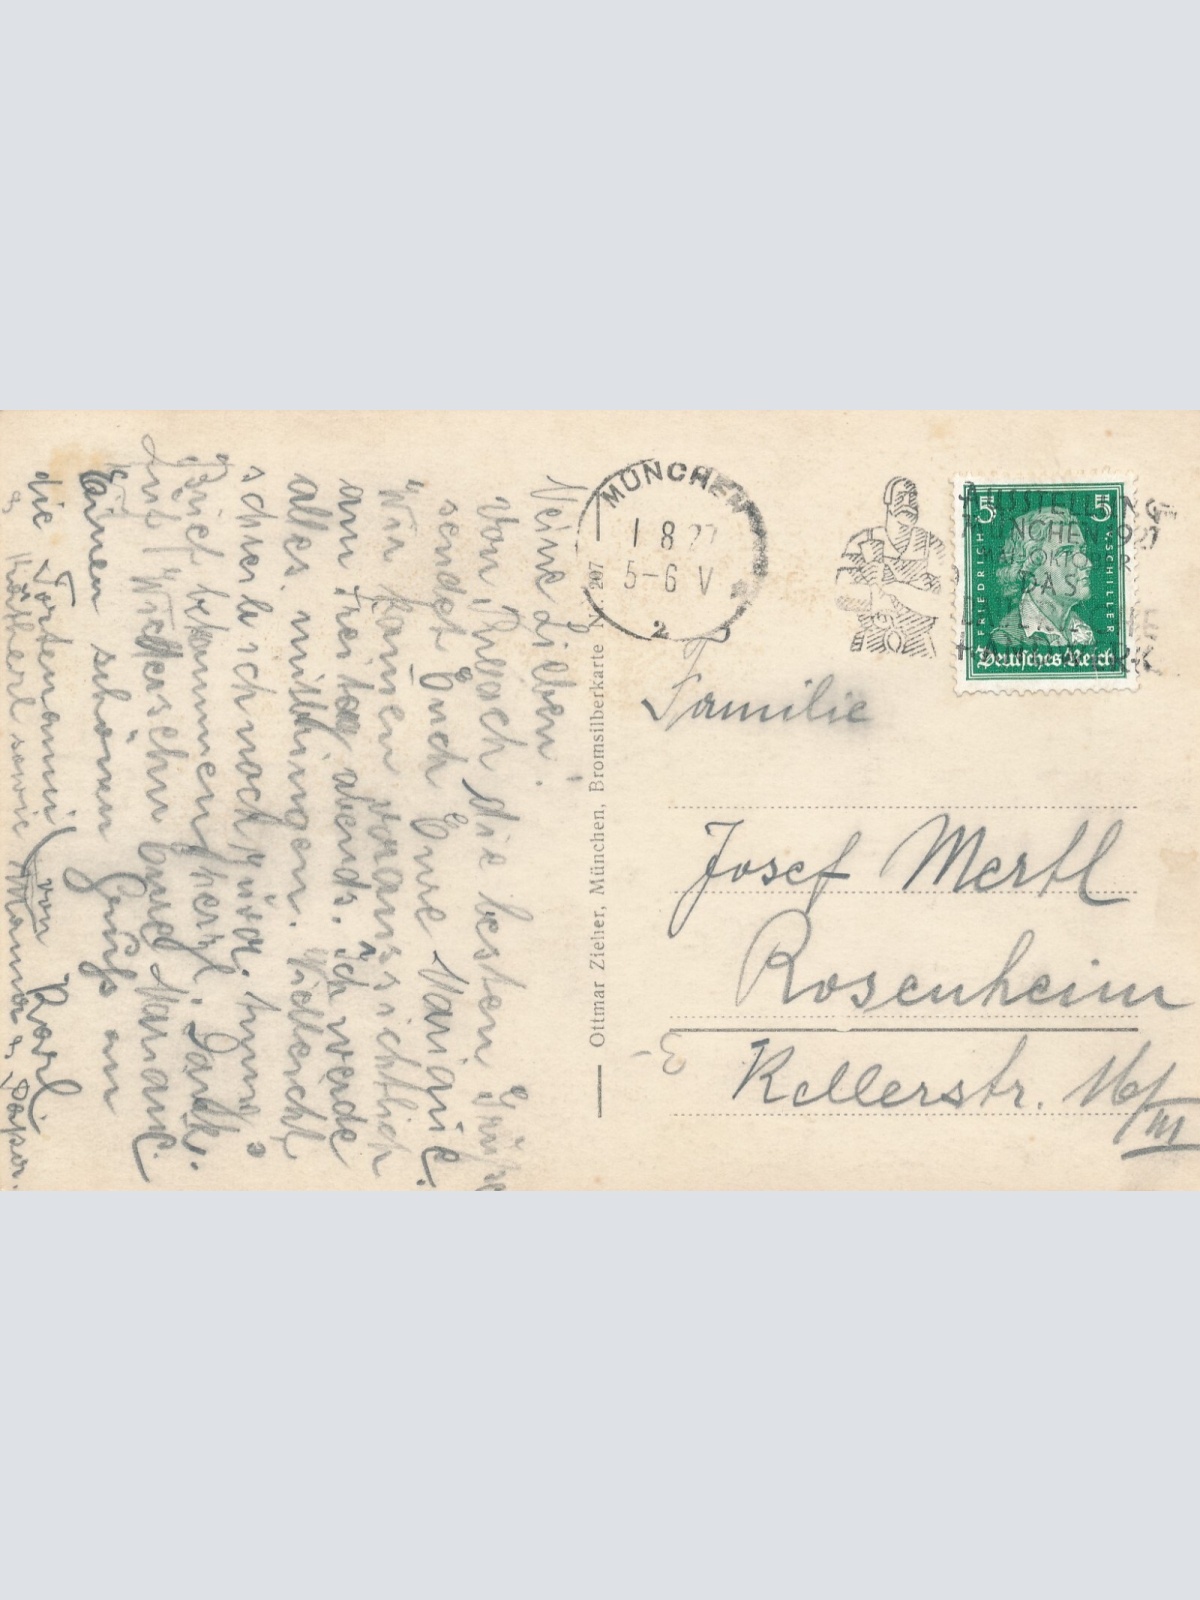 Meine Lieben!
Von die besten Grüße
sendet Euch Eure Marianne.
Wir kommen voraussichtlich
am Freitag abends. Ich werde
alles mitbringen. Vielleicht
schreibe ich noch zuvor.
Brief bekommen, herzl. Dank.
Auf Wiedersehn Eure Mariane
Einen schönen Gruß an
die von Karl
sowie Mama & Papa.
MÜNCHEN
1 8 27
5-6 V
2
AUSSTELLUNG
MÜNCHEN 1927
DAS
5 5
FRIEDRICH V. SCHILLER
Deutsches Reich
Ottmar Zieher, München, Bromsilberkarte N. 207
Familie
Josef Mertl
Rosenheim
Kellerstr. 16/III